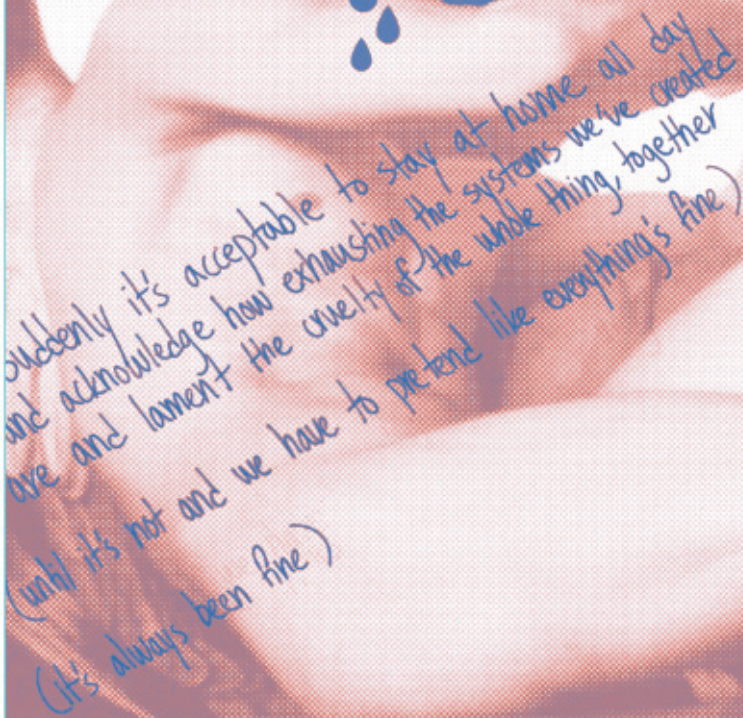 suddenly it's acceptable to stay at home all day
and acknowledge how exhausting the systems we've created
are and lament the cruelty of the whole thing, together
(until it's not and we have to pretend like everything's fine)
(it's always been fine)